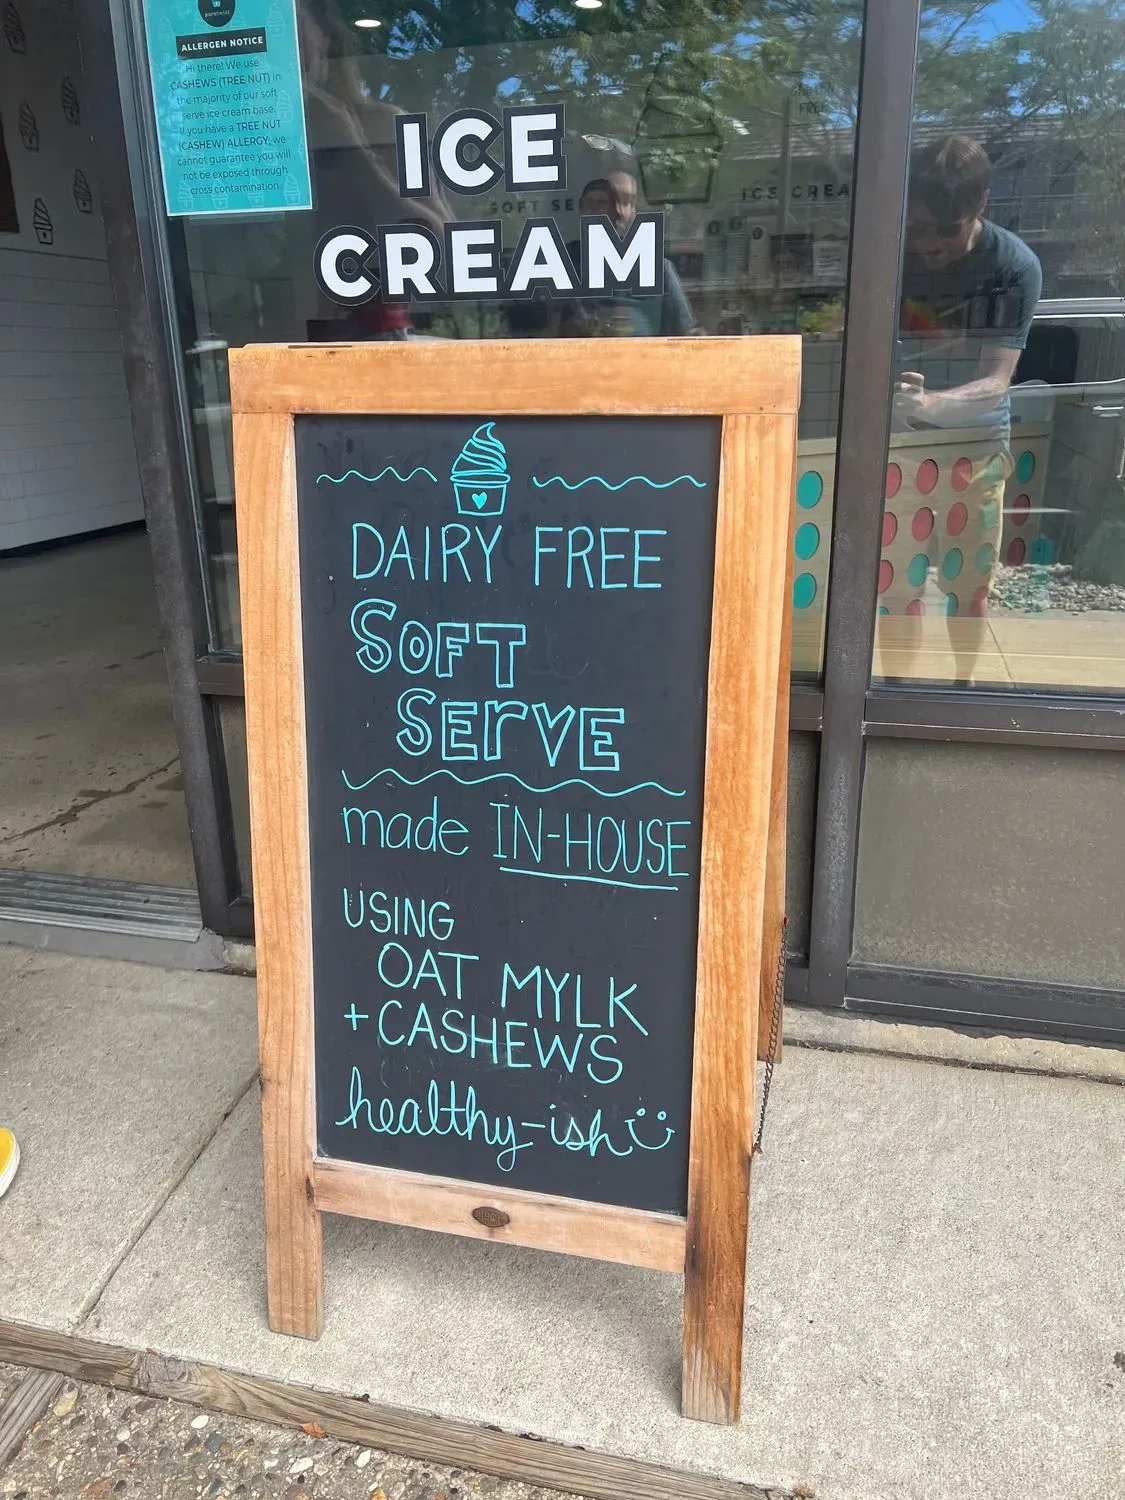 ALLERGEN NOTICE
Hi there! We use
CASHEWS (TREE NUT) in
the majority of our soft
serve ice cream base.
If you have a TREE NUT
(CASHEW) ALLERGY, we
cannot guarantee you will
not be exposed through
cross contamination.
ICE
CREAM
SOFT SE
ICE CREA
FREE
DAIRY FREE
SOFT
SERVE
made IN-HOUSE
USING
OAT MYLK
+ CASHEWS
healthy-ish